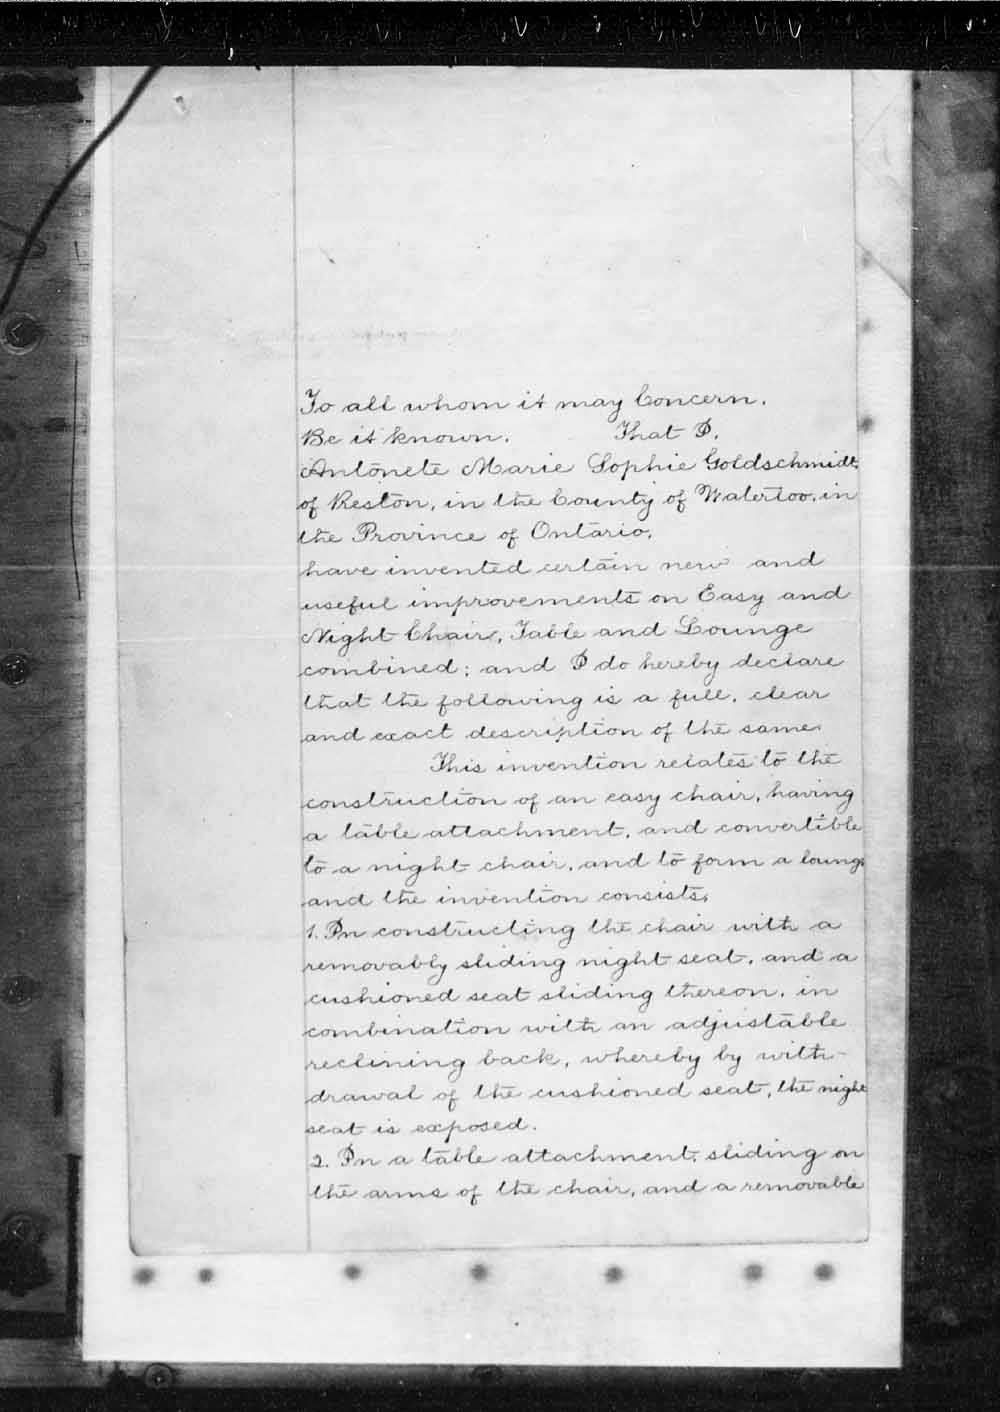 To all whom it may Concern.
Be it known. That I,
Antonete Marie Sophie Goldschmidt,
of Reston, in the County of Watertoo, in
the Province of Ontario,
have invented certain new and
useful improvements on Easy and
Night Chair, Table and Lounge
combined; and I do hereby declare
that the following is a full, clear
and exact description of the same.
This invention relates to the
construction of an easy chair, having
a table attachment, and convertible
to a night chair, and to form a lounge
and the invention consists,
1. In constructing the chair with a
removably sliding night seat, and a
cushioned seat sliding thereon, in
combination with an adjustable
reclining back, whereby by with-
drawal of the cushioned seat, the night
seat is exposed.
2. In a table attachment, sliding on
the arms of the chair, and a removable